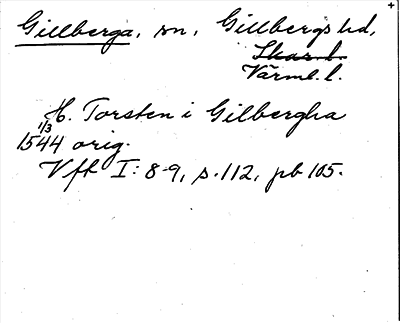 Gillberga, sn, Gillbergs hd,
Skar. l.
Värml. l.
H. Torsten i Gilbergha
1/3
1544 orig.
Vfk I: 8-9, s. 112, pb 105.